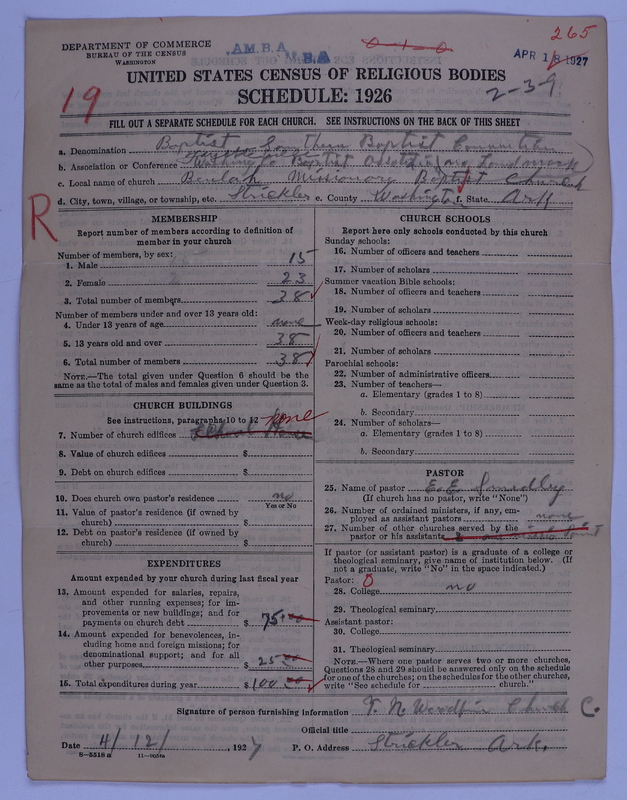 265
DEPARTMENT OF COMMERCE
BUREAU OF THE CENSUS
WASHINGTON
A.M.B.A.
M.B.A
0-1-0
APR 18 1927
UNITED STATES CENSUS OF RELIGIOUS BODIES
SCHEDULE: 1926
19
2-3-9
FILL OUT A SEPARATE SCHEDULE FOR EACH CHURCH. SEE INSTRUCTIONS ON THE BACK OF THIS SHEET
a. Denomination Baptist Southern Baptist Convention
b. Association or Conference Washington Baptist Association Landmark
c. Local name of church Beulah Missionary Baptist Church
d. City, town, village, or township, etc. Strickler e. County Washington f. State Ark
R
MEMBERSHIP
Report number of members according to definition of member in your church
Number of members, by sex:
1. Male 15
2. Female 23
3. Total number of members 38
Number of members under and over 13 years old:
4. Under 13 years of age none
5. 13 years old and over 38
6. Total number of members 38
NOTE.—The total given under Question 6 should be the same as the total of males and females given under Question 3.
CHURCH BUILDINGS
See instructions, paragraphs 10 to 12 none
7. Number of church edifices School House
8. Value of church edifices $
9. Debt on church edifices $
10. Does church own pastor's residence no
Yes or No
11. Value of pastor's residence (if owned by church) $
12. Debt on pastor's residence (if owned by church) $
EXPENDITURES
Amount expended by your church during last fiscal year
13. Amount expended for salaries, repairs, and other running expenses; for improvements or new buildings; and for payments on church debt $ 75.00
14. Amount expended for benevolences, including home and foreign missions; for denominational support; and for all other purposes $ 25 00
15. Total expenditures during year $ 100 00
CHURCH SCHOOLS
Report here only schools conducted by this church
Sunday schools:
16. Number of officers and teachers
17. Number of scholars
Summer vacation Bible schools:
18. Number of officers and teachers
19. Number of scholars
Week-day religious schools:
20. Number of officers and teachers
21. Number of scholars
Parochial schools:
22. Number of administrative officers
23. Number of teachers—
a. Elementary (grades 1 to 8)
b. Secondary
24. Number of scholars—
a. Elementary (grades 1 to 8)
b. Secondary
PASTOR
25. Name of pastor E. E.
(If church has no pastor, write "None")
26. Number of ordained ministers, if any, employed as assistant pastors none
27. Number of other churches served by the pastor or his assistants
If pastor (or assistant pastor) is a graduate of a college or theological seminary, give name of institution below. (If not a graduate, write "No" in the space indicated.)
Pastor: 0
28. College no
29. Theological seminary
Assistant pastor:
30. College
31. Theological seminary
NOTE.—Where one pastor serves two or more churches, Questions 28 and 29 should be answered only on the schedule for one of the churches; on the schedules for the other churches, write "See schedule for church."
Signature of person furnishing information T. N. Woodfin Church C.
Official title
Date 4/12/, 1927 P. O. Address Strickler Ark.
8-5518a 11-9054a